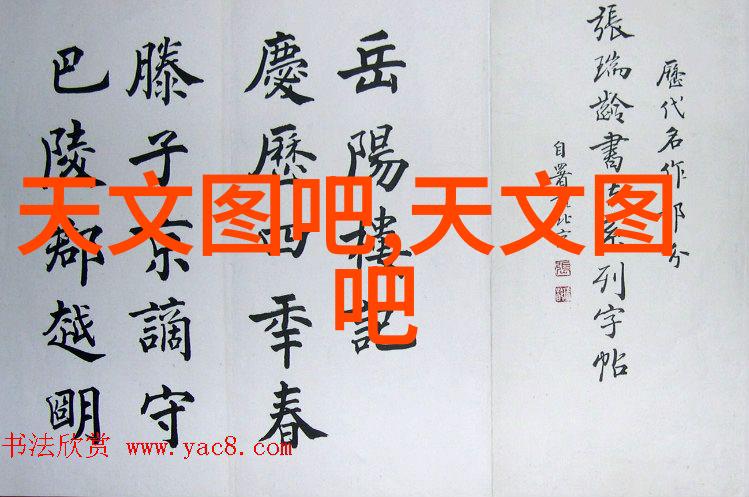 歷代名作部分
張瑞齡書法系列字帖
自署
岳陽樓記
慶歷四年春
滕子京謫守
巴陵郡越明
天文图吧,天文图
吧
书法欣赏 www.yac8.com